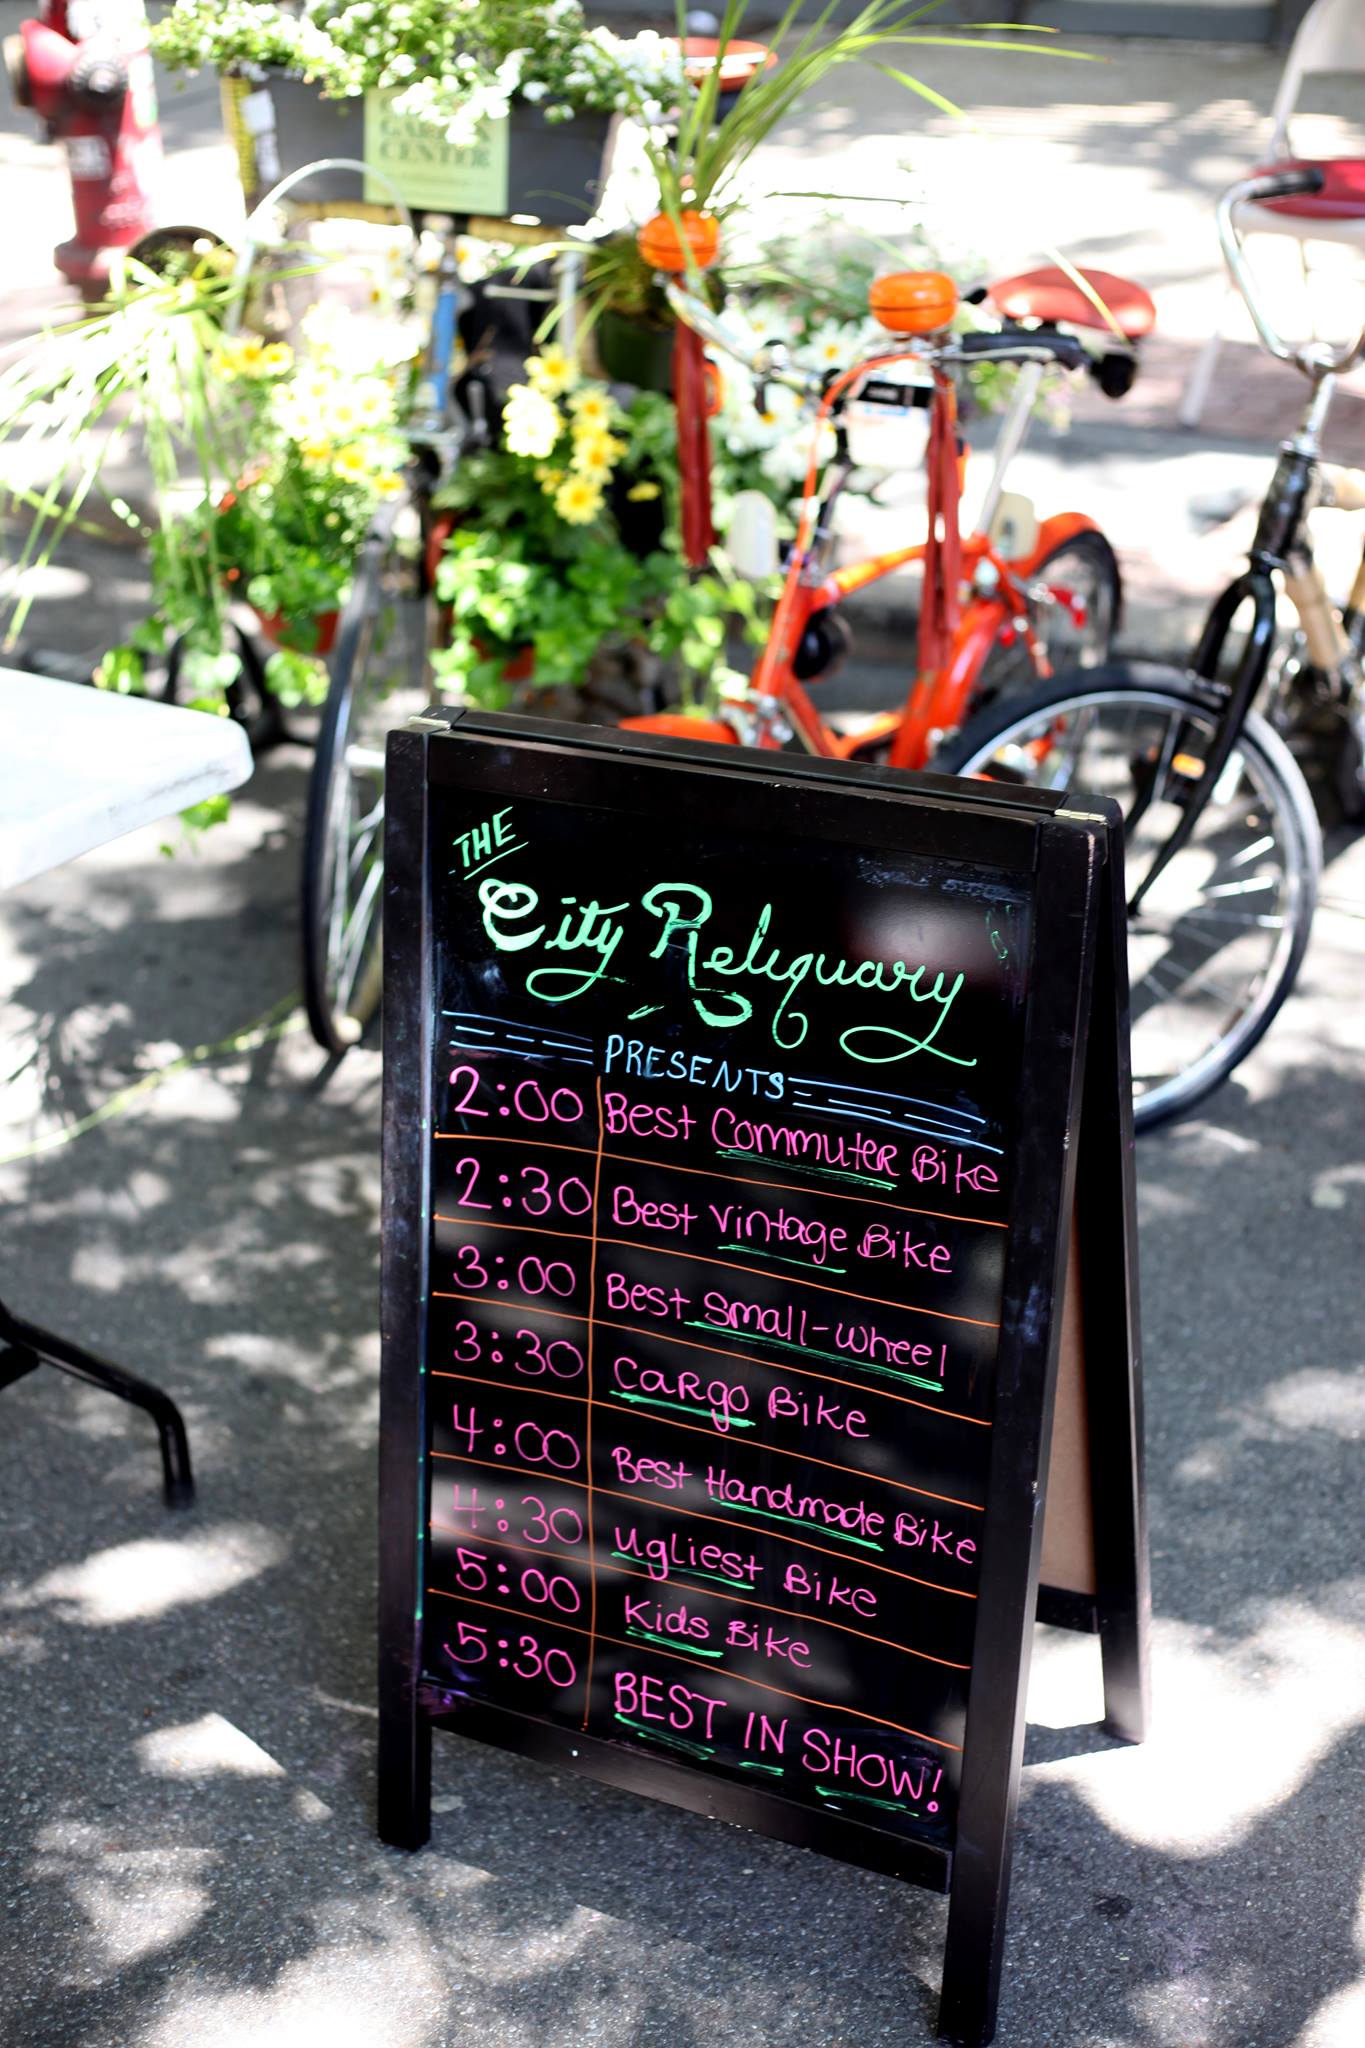 GARDEN
CENTER
THE
City Reliquary
PRESENTS
2:00 Best Commuter Bike
2:30 Best Vintage Bike
3:00 Best Small-wheel
3:30 Cargo Bike
4:00 Best Handmade Bike
4:30 Ugliest Bike
5:00 Kids Bike
5:30 BEST IN SHOW!